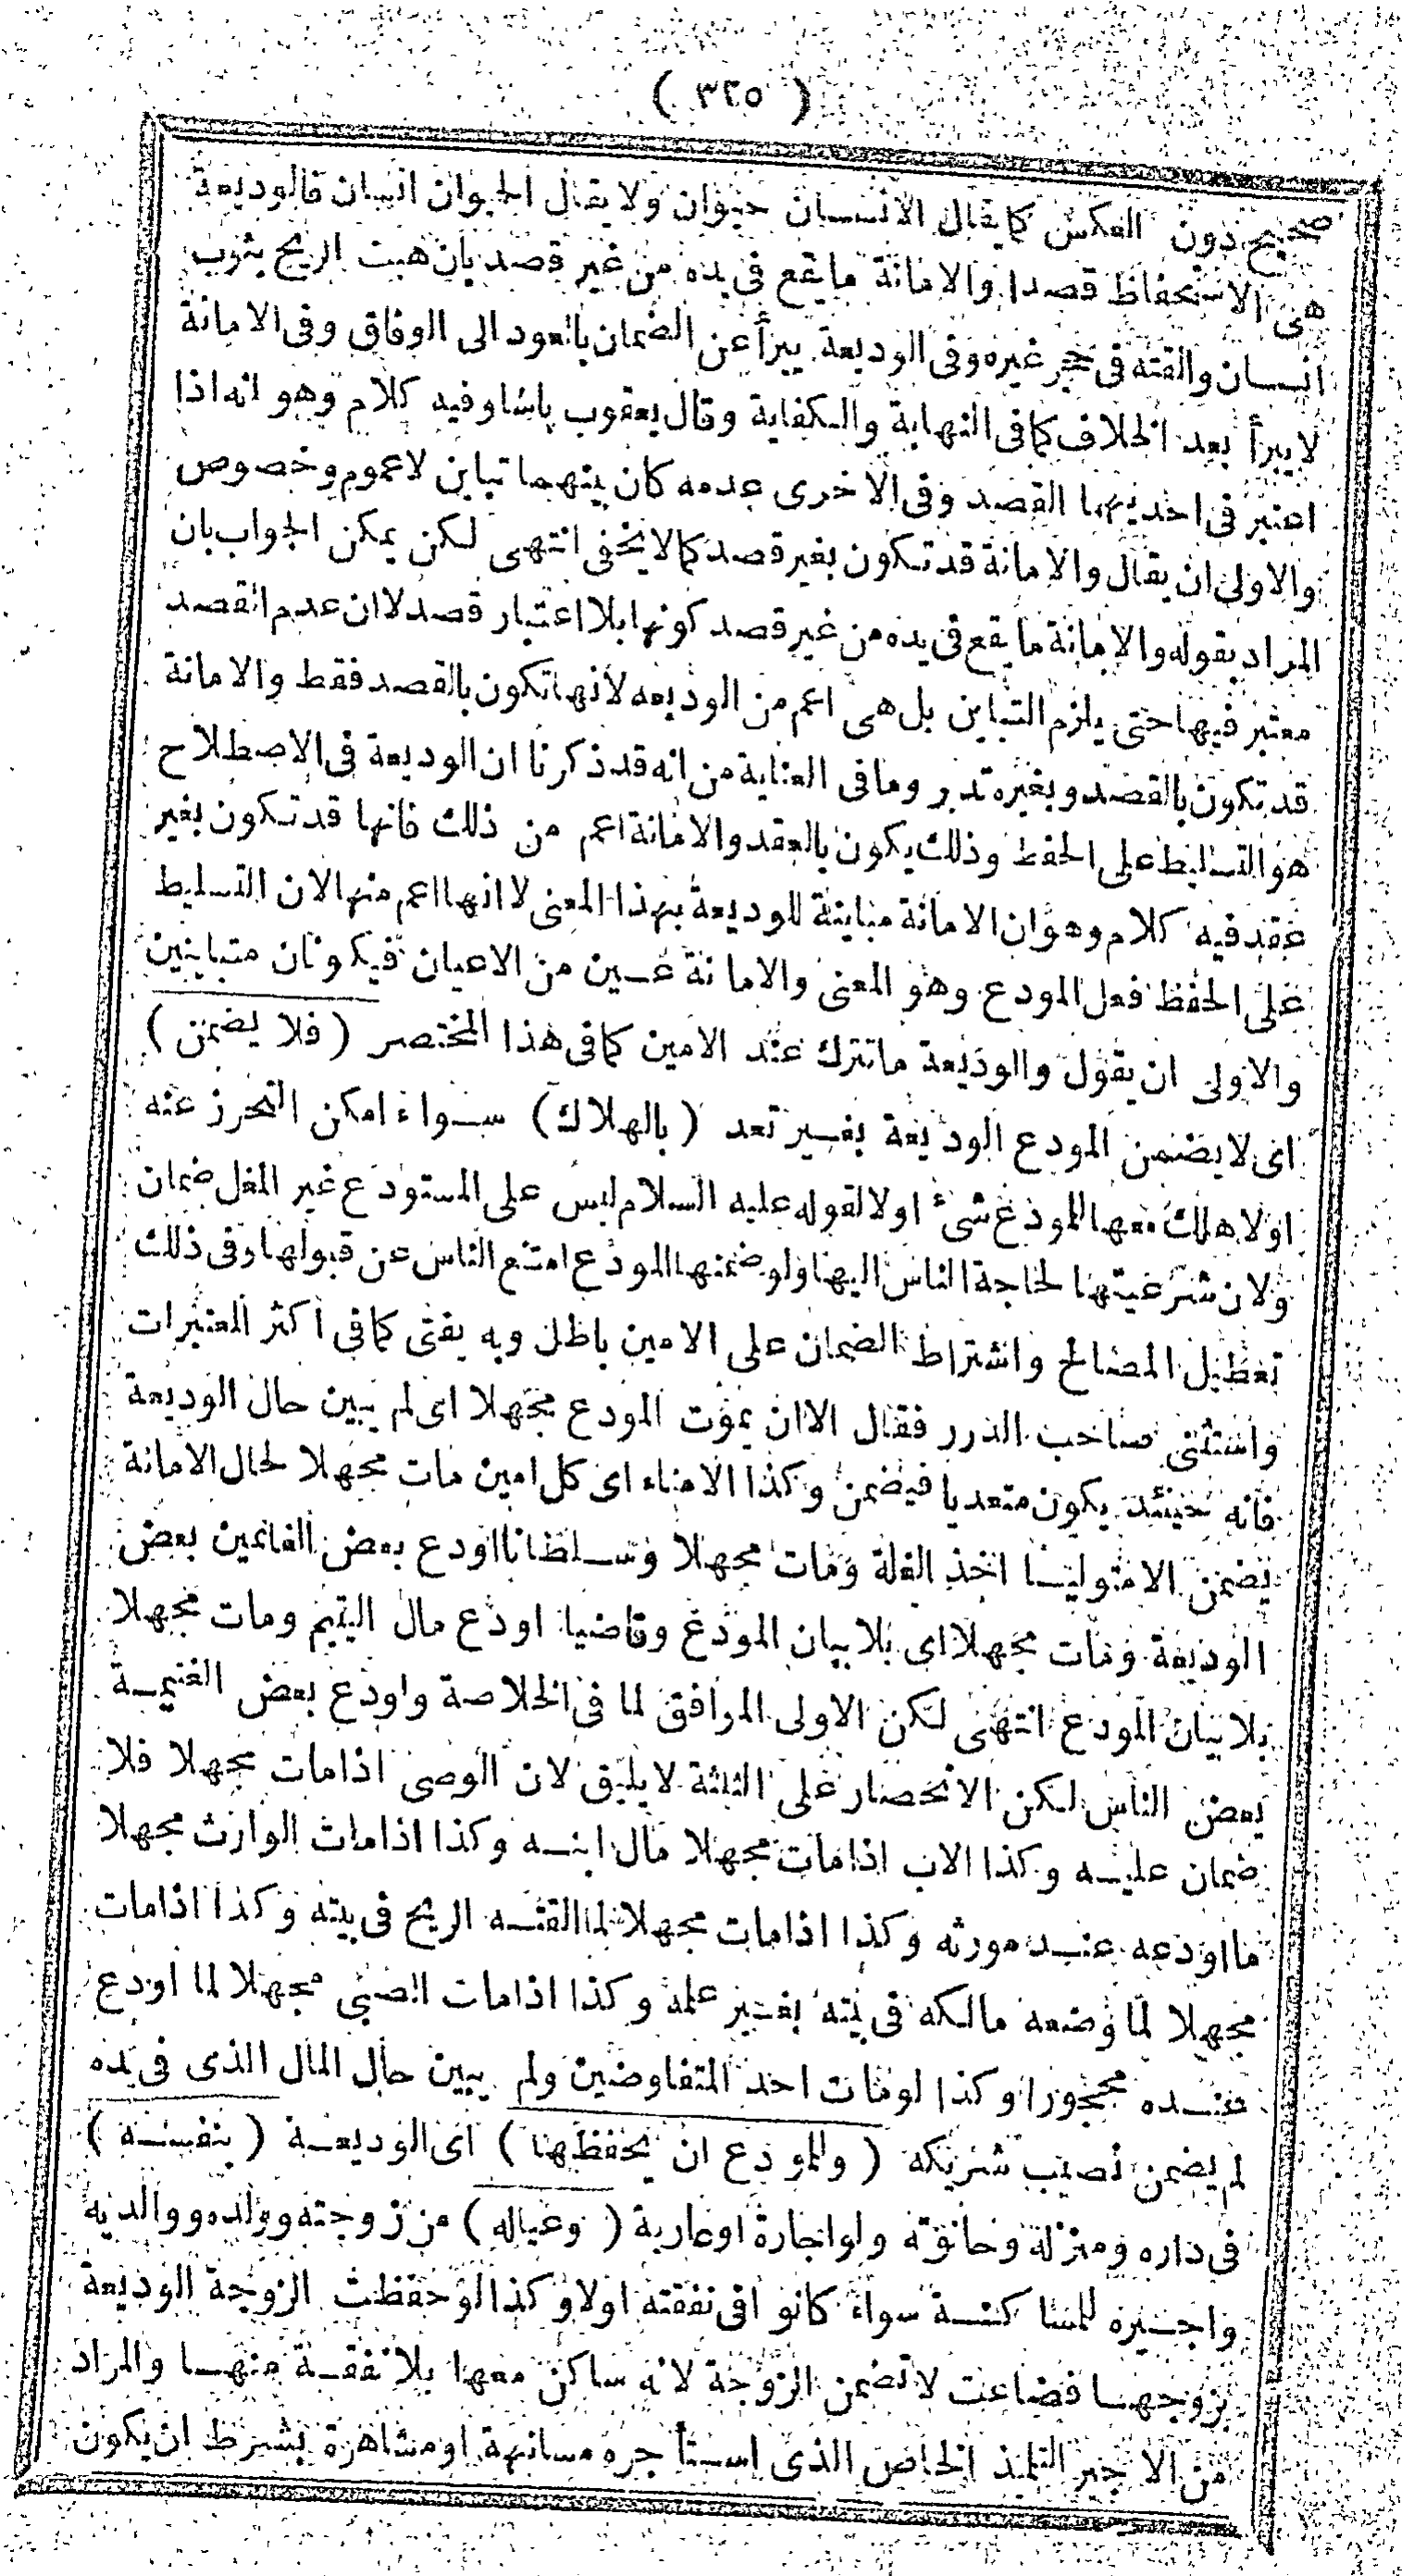 ( ٣٢٥ )
صحيح دون العكس كما يقال الانسان حيوان ولا يقال الحيوان انسان فالوديعة
هى الاستحفاظ قصدا والامانة ما يقع فى يده من غير قصد بان هبت الريح بثوب
انسان والقته فى حجر غيره وفى الوديعة يبرأ عن الضمان بالعود الى الوفاق وفى الامانة
لا يبرأ بعد الخلاف كما فى النهاية والكفاية وقال يعقوب پاشا وفيه كلام وهو انه اذا
اعتبر فى احديهما القصد وفى الاخرى عدمه كان بينهما تباين لا عموم وخصوص
والاولى ان يقال والامانة قد تكون بغير قصد كما لا يخفى انتهى لكن يمكن الجواب بان
المراد بقوله والامانة ما يقع فى يده من غير قصد كونها بلا اعتبار قصد لا ان عدم القصد
معتبر فيها حتى يلزم التباين بل هى اعم من الوديعه لانها تكون بالقصد فقط والامانة
قد تكون بالقصد وبغيره تدبر وما فى العناية من انه قد ذكرنا ان الوديعة فى الاصطلاح
هو التسليط على الحفظ وذلك يكون بالعقد والامانة اعم من ذلك فانها قد تكون بغير
عقد فيه كلام وهو ان الامانة مباينة للوديعة بهذا المعنى لا انها اعم منها لان التسليط
على الحفظ فعل المودع وهو المعنى والامانة عين من الاعيان فيكونان متباينين
والاولى ان يقول والوديعة ما تترك عند الامين كما فى هذا المختصر ( فلا يضمن )
اى لا يضمن المودع الوديعة بغير تعد ( بالهلاك ) سواء امكن التحرز عنه
اولا هلك معها للمودع شئ اولا لقوله عليه السلام ليس على المستودع غير المغل ضمان
ولان شرعيتها لحاجة الناس اليها ولو ضمنها المودع امتنع الناس عن قبولها وفى ذلك
تعطيل المصالح واشتراط الضمان على الامين باطل وبه يفتى كما فى اكثر المعتبرات
واستثنى صاحب الدرر فقال الا ان يموت المودع مجهلا اى لم يبين حال الوديعة
فانه حينئذ يكون متعديا فيضمن وكذا الامناء اى كل امين مات مجهلا لحال الامانة
يضمن الا متوليا اخذ الغلة ومات مجهلا وسلطانا اودع بعض الغانمين بعض
الوديعة ومات مجهلا اى بلا بيان المودع وقاضيا اودع مال اليتيم ومات مجهلا
بلا بيان المودع انتهى لكن الاولى الموافق لما فى الخلاصة واودع بعض الغنيمة
بعض الناس لكن الانحصار على الثلثة لا يليق لان الوصى اذا مات مجهلا فلا
ضمان عليه وكذا الاب اذا مات مجهلا مال ابنه وكذا اذا مات الوارث مجهلا
ما اودعه عند مورثه وكذا اذا مات مجهلا لما القته الريح فى بيته وكذا اذا مات
مجهلا لما وضعه مالكه فى بيته بغير علمه وكذا اذا مات الصبى مجهلا لما اودع
عنده محجورا وكذا لو مات احد المتفاوضين ولم يبين حال المال الذى فى يده
لم يضمن نصيب شريكه ( وللمودع ان يحفظها ) اى الوديعة ( بنفسه )
فى داره ومنزله وحانوته ولو اجارة او عارية ( وعياله ) من زوجته وولده ووالديه
واجيره للمساكنة سواء كانوا فى نفقته اولا وكذا لو حفظت الزوجة الوديعة
بزوجها فضاعت لا تضمن الزوجة لانه ساكن معها بلا نفقة منها والمراد
من الاجير التلميذ الخاص الذى استأجره مسانهة او مشاهرة بشرط ان يكون